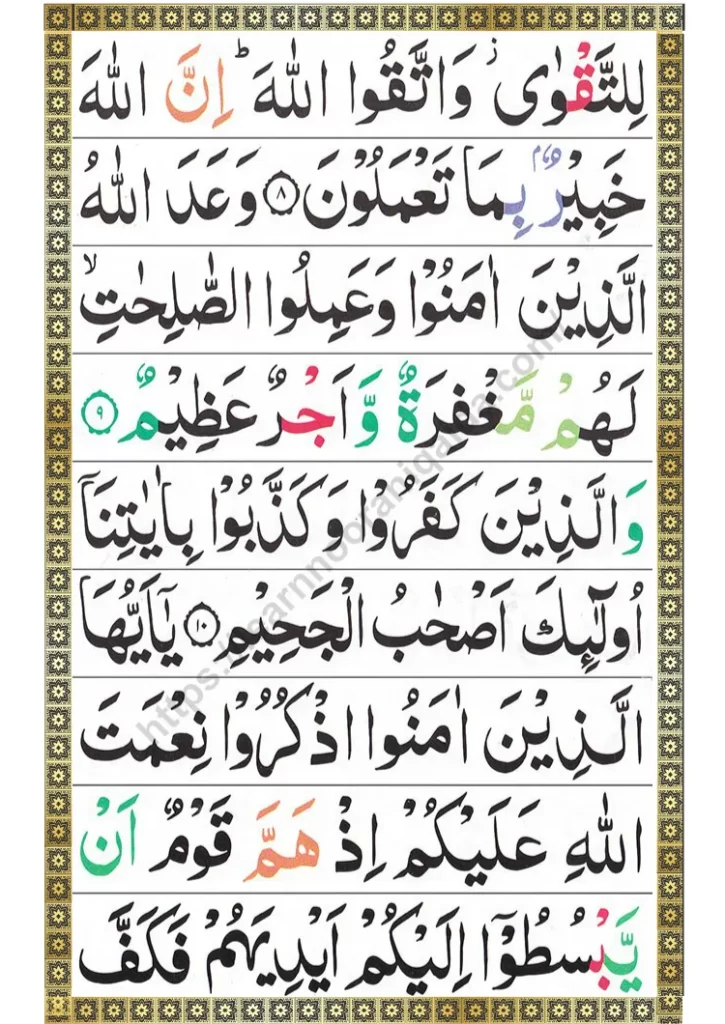 لِلتَّقْوٰى ۫ وَاتَّقُوا اللّٰهَ ؕ اِنَّ اللّٰهَ
خَبِيْرٌۢ بِمَا تَعْمَلُوْنَ ۸ وَعَدَ اللّٰهُ
الَّذِيْنَ اٰمَنُوْا وَعَمِلُوا الصّٰلِحٰتِ ۙ
لَهُمْ مَّغْفِرَةٌ وَّاَجْرٌ عَظِيْمٌ ۹
وَالَّذِيْنَ كَفَرُوْا وَكَذَّبُوْا بِاٰيٰتِنَاۤ
اُولٰٓئِكَ اَصْحٰبُ الْجَحِيْمِ ۱۰ يٰۤاَيُّهَا
الَّذِيْنَ اٰمَنُوا اذْكُرُوْا نِعْمَتَ
اللّٰهِ عَلَيْكُمْ اِذْ هَمَّ قَوْمٌ اَنْ
يَّبْسُطُوْۤا اِلَيْكُمْ اَيْدِيَهُمْ فَكَفَّ
https://learnnooraniqaida.com/